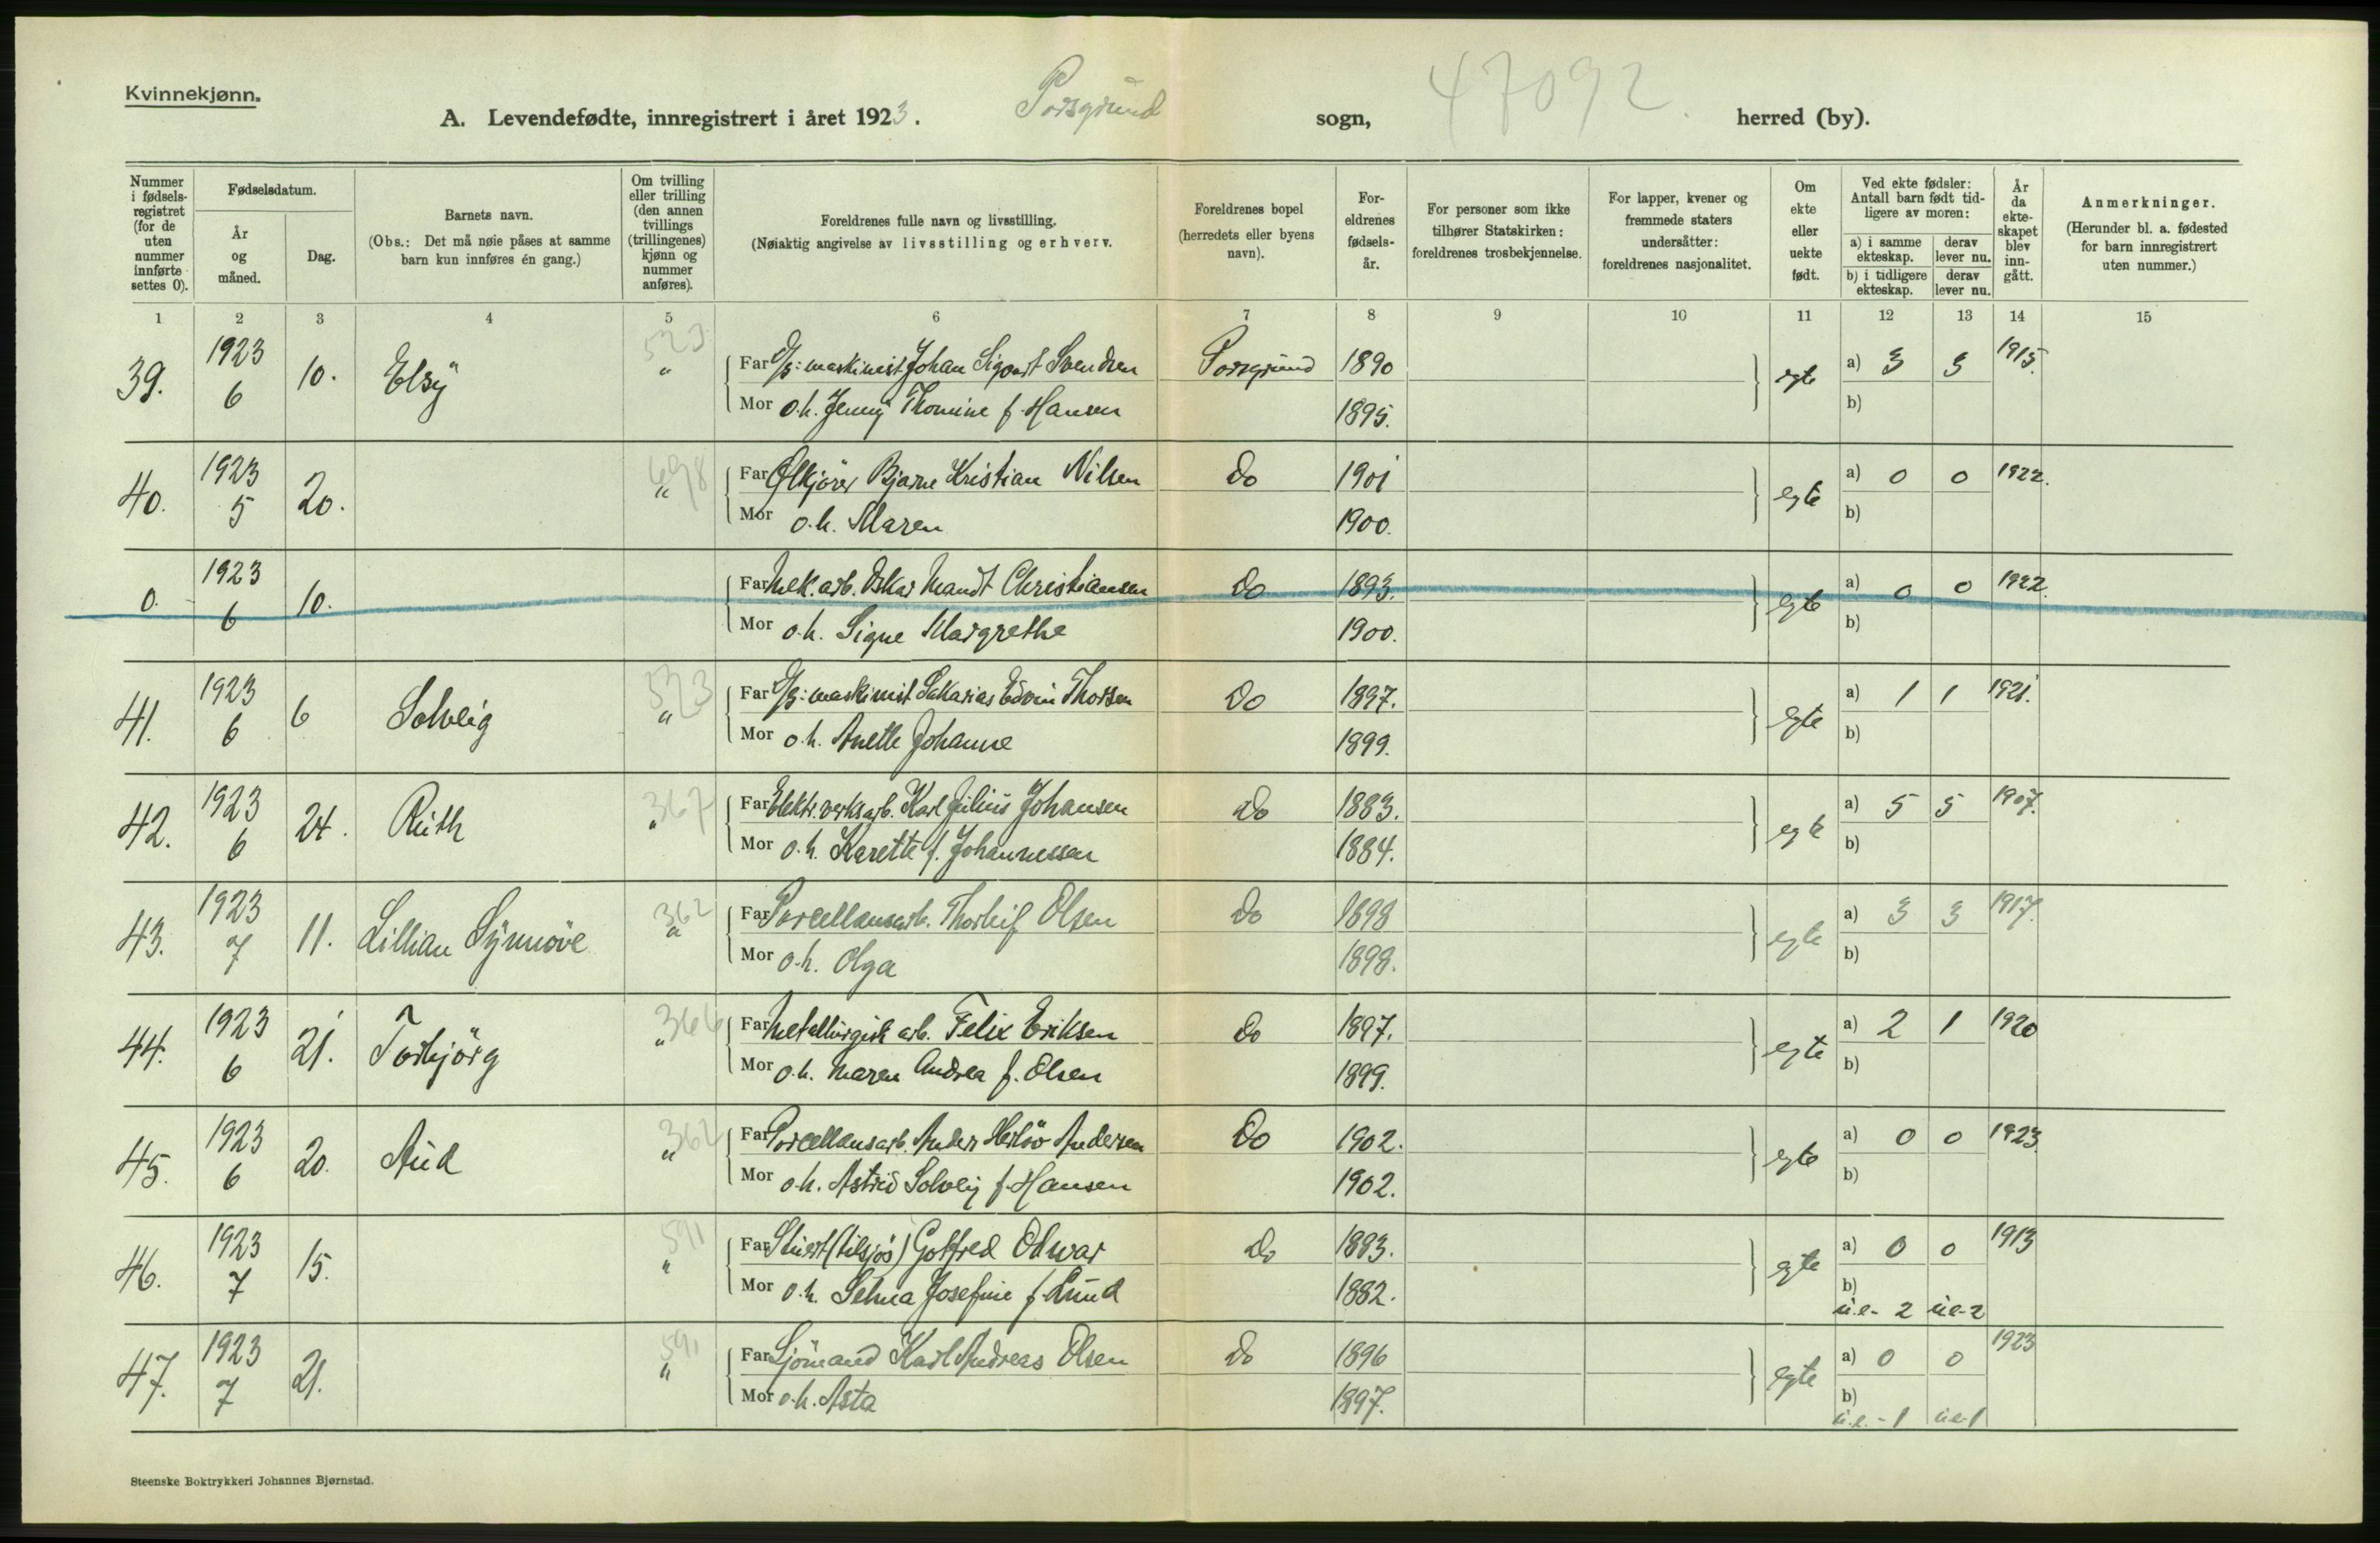 Kvinnekjønn.
A. Levendefødte, innregistrert i året 1923. Porsgrund sogn, 47092 herred (by).
Nummer i fødsels-registret (for de uten nummer innførte settes 0).
Fødselsdatum.
År og måned.
Dag.
Barnets navn.
(Obs.: Det må nøie påses at samme barn kun innføres én gang.)
Om tvilling eller trilling (den annen tvillings (trillingenes) kjønn og nummer anføres).
Foreldrenes fulle navn og livsstilling.
(Nøiaktig angivelse av livsstilling og erhverv.
Foreldrenes bopel (herredets eller byens navn).
For-eldrenes fødsels-år.
For personer som ikke tilhører Statskirken: foreldrenes trosbekjennelse.
For lapper, kvener og fremmede staters undersåtter: foreldrenes nasjonalitet.
Om ekte eller uekte født.
Ved ekte fødsler: Antall barn født tid-ligere av moren:
a) i samme ekteskap. derav lever nu.
b) i tidligere ekteskap. derav lever nu.
År da ekte-skapet blev inn-gått.
Anmerkninger.
(Herunder bl. a. fødested for barn innregistrert uten nummer.)
1 2 3 4 5 6 7 8 9 10 11 12 13 14 15
39. 1923 6 10. Elsy 523 " Far D/s: maskinist Johan Sigvart Svendsen Porsgrund 1890 egte a) 3 3 1915.
Mor o.h. Jenny Thomine f. Hansen 1895. b)
40. 1923 5 20. 698 " Far Ølkjører Bjarne Kristian Nilsen Do 1901 egte a) 0 0 1922.
Mor o.h. Maren 1900. b)
0. 1923 6 10. Far Mek. arb. Oskar Mandt Christiansen Do 1893. egte a) 0 0 1922.
Mor o.h. Signe Margrethe 1900. b)
41. 1923 6 6 Solveig 523 " Far D/s: maskinist Sakarias Edvin Thorsen Do 1897. egte a) 1 1 1921.
Mor o.h. Anette Johanne 1899. b)
42. 1923 6 24. Ruth 367 " Far Elektr. verksarb. Karl Julius Johansen Do 1883. egte a) 5 5 1907.
Mor o.h. Karette f. Johannessen 1884. b)
43. 1923 7 11. Lillian Synnöve 362 " Far Porcellansarb. Thorleif Olsen Do 1898 egte a) 3 3 1917.
Mor o.h. Olga 1898. b)
44. 1923 6 21. Torbjörg 366 " Far Metallurgisk arb. Felix Eriksen Do 1897. egte a) 2 1 1920
Mor o.h. Maren Andrea f. Olsen 1899. b)
45. 1923 6 20. Aud 362 " Far Porcellansarb. Anders Andersen Do 1902. egte a) 0 0 1923.
Mor o.h. Astrid Solveig f. Hansen 1902. b)
46. 1923 7 15. 591 " Far Stuert (tilsjös) Gotfred Odwar Do 1883. egte a) 0 0 1913
Mor o.h. Selma Josefine f. Lund 1882. b)
u.e- 2 u.e-2
47. 1923 7 21. 591 " Far Sjömand Karl Andreas Olsen Do 1896 egte a) 0 0 1923
Mor o.h. Asta 1897. b)
u.e. - 1 u.e-1
Steenske Boktrykkeri Johannes Bjørnstad.